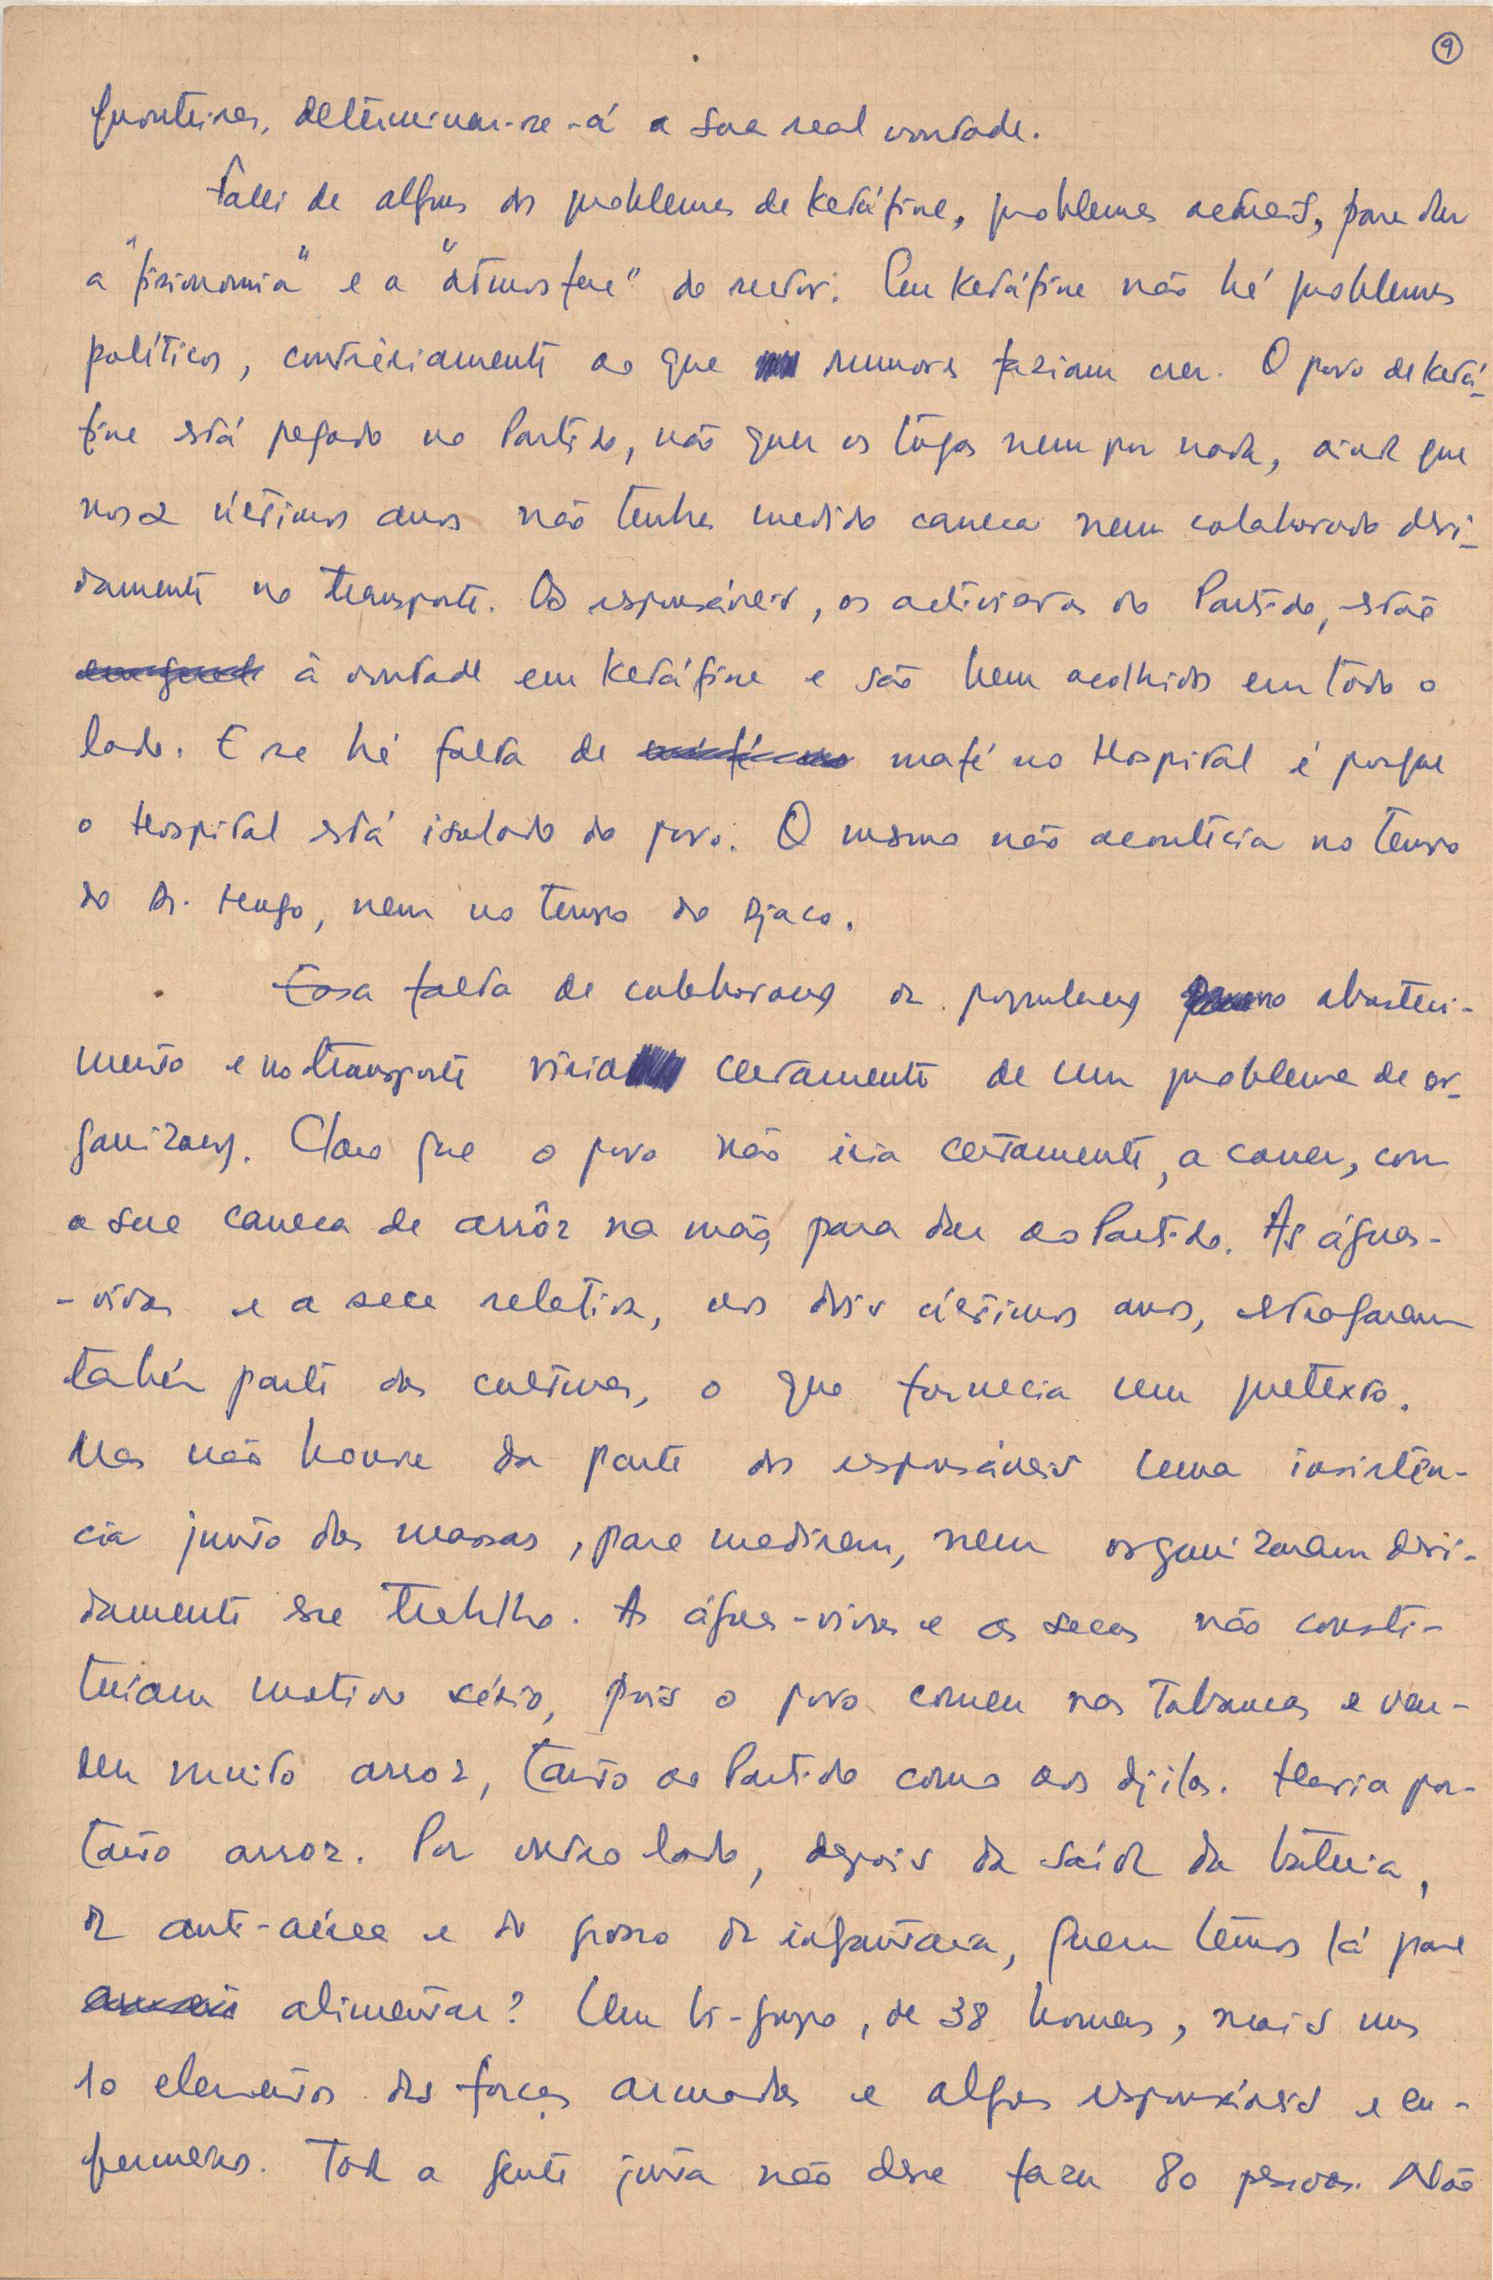 9
fronteiras, determinar-se-á a sua real vontade.
Falei de alguns dos problemas de Ketáfine, problemas actuais, para dar
a "fisionomia" e a "atmosfera" do sector. Em Ketáfine não há problemas
políticos, contràriamente ao que rumores faziam crer. O povo de Ketá-
fine está pegado no Partido, não quer os tugas nem por nada, ainda que
nos 2 últimos anos não tenha medido caneca nem colaborado devi-
damente no transporte. Os responsáveis, os activistas do Partido, estão
em geral à vontade em Ketáfine e são bem acolhidos em todo o
lado. E se há falta de mafé no Hospital é porque
o Hospital está isolado do povo. O mesmo não acontecia no tempo
do Dr. Hugo, nem no tempo do Djaco.
Essa falta de colaboração da população no abasteci-
mento e no transporte viria certamente de um problema de or-
ganização. Claro que o povo não iria certamente, a correr, com
a sua caneca de arrôz na mão, para dar ao Partido. As águas-
-vivas e a seca relativa, nos dois últimos anos, estragaram
também parte das culturas, o que fornecia um pretexto.
Mas não houve da parte dos responsáveis uma insistên-
cia junto das massas, para medirem, nem organizaram devi-
damente esse trabalho. As águas-vivas e as secas não consti-
tuiam motivo sério, pois o povo comeu nas tabancas e ven-
deu muito arroz, tanto ao Partido como aos djilas. Havia por-
tanto arroz. Por outro lado, depois da saída da bateria,
da anti-aérea e do grosso da infantaria, quem temos lá para
alimentar? Um bi-grupo, de 38 homens, mais uns
10 elementos das forças armadas e alguns responsáveis e en-
fermeiros. Toda a gente junta não deve fazer 80 pessoas. Não